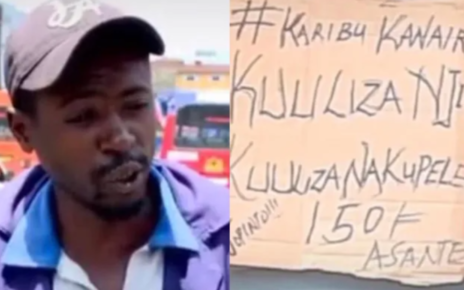 #KARIBU KANAIR
KUULIZA NJI
KUULIZA NAKUPELE
150F
ASANTE